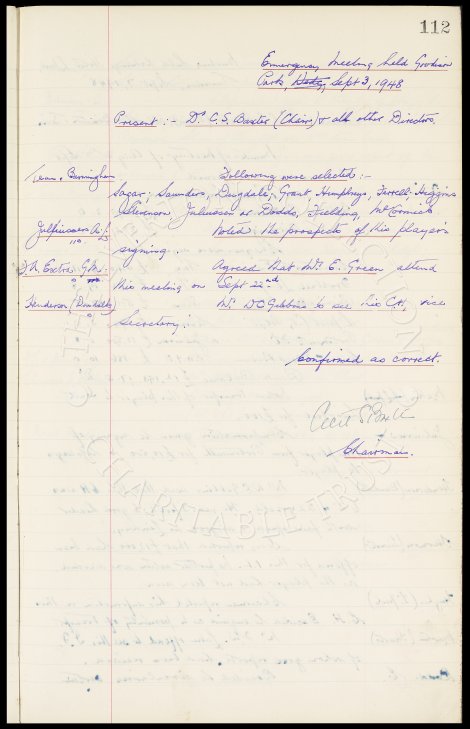 112
Emergency Meeting held Goodison
Park, Sept 3, 1948
Present :- Dr C.S. Baxter (Chair) & all other Directors,
Team v Birmingham
Following were selected :-
Sagar; Saunders, Dugdale, Grant Humphreys, Farrell, Higgins
Stevenson Juliussen or Dodds, Fielding, McCormick
Juliussen A.
Noted the prospects of this player's
signing.
Extra G.M.
Agreed that Mr. E. Green attend
this meeting on Sept 22nd
Henderson (Dundalk)
Mr. W C Gibbins to see his C.H, vice
Secretary.
Confirmed as correct.
Cecil S Baxter
Chairman.
CHARITABLE TRUST